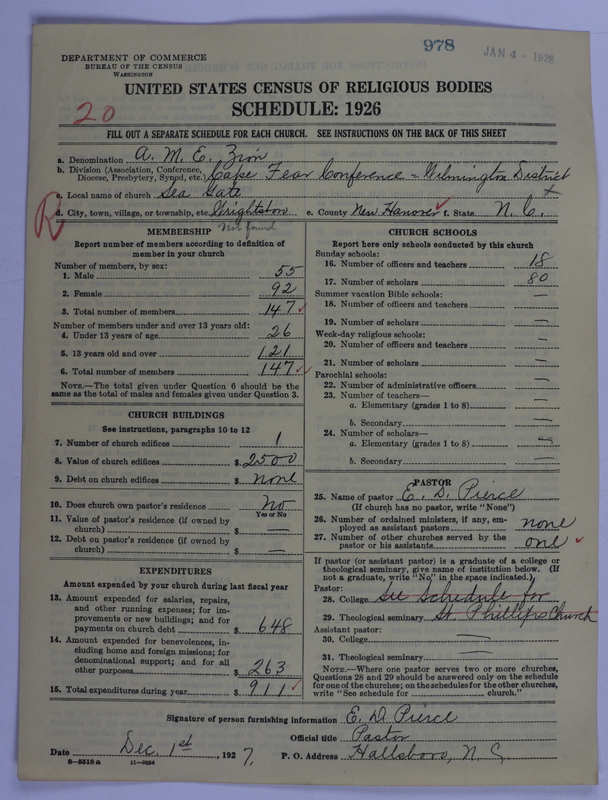 978
JAN 4 - 1928
DEPARTMENT OF COMMERCE
BUREAU OF THE CENSUS
WASHINGTON
UNITED STATES CENSUS OF RELIGIOUS BODIES
SCHEDULE: 1926
20
FILL OUT A SEPARATE SCHEDULE FOR EACH CHURCH. SEE INSTRUCTIONS ON THE BACK OF THIS SHEET
a. Denomination A. M. E. Zion
b. Division (Association, Conference, Diocese, Presbytery, Synod, etc.) Cape Fear Conference = Wilmington District
c. Local name of church Sea Gate
d. City, town, village, or township, etc. Wrightston e. County New Hanover f. State N. C.
R
Not found
MEMBERSHIP
Report number of members according to definition of
member in your church
Number of members, by sex:
1. Male 55
2. Female 92
3. Total number of members 147
Number of members under and over 13 years old:
4. Under 13 years of age 26
5. 13 years old and over 121
6. Total number of members 147
NOTE.—The total given under Question 6 should be the
same as the total of males and females given under Question 3.
CHURCH BUILDINGS
See instructions, paragraphs 10 to 12
7. Number of church edifices 1
8. Value of church edifices $ 2500
9. Debt on church edifices $ none
10. Does church own pastor's residence? No
Yes or No
11. Value of pastor's residence (if owned by
church) $ —
12. Debt on pastor's residence (if owned by
church) $ —
EXPENDITURES
Amount expended by your church during last fiscal year
13. Amount expended for salaries, repairs,
and other running expenses; for im-
provements or new buildings; and for
payments on church debt $ 648
14. Amount expended for benevolences, in-
cluding home and foreign missions; for
denominational support; and for all
other purposes $ 263
15. Total expenditures during year $ 911
CHURCH SCHOOLS
Report here only schools conducted by this church
Sunday schools:
16. Number of officers and teachers 18
17. Number of scholars 80
Summer vacation Bible schools:
18. Number of officers and teachers —
19. Number of scholars —
Week-day religious schools:
20. Number of officers and teachers —
21. Number of scholars —
Parochial schools:
22. Number of administrative officers —
23. Number of teachers—
a. Elementary (grades 1 to 8) —
b. Secondary —
24. Number of scholars—
a. Elementary (grades 1 to 8) —
b. Secondary —
PASTOR
25. Name of pastor E. D. Pierce
(If church has no pastor, write "None")
26. Number of ordained ministers, if any, em-
ployed as assistant pastors none
27. Number of other churches served by the
pastor or his assistants one
If pastor (or assistant pastor) is a graduate of a college or
theological seminary, give name of institution below. (If
not a graduate, write "No" in the space indicated.)
Pastor:
28. College See Schedule for
29. Theological seminary St. Phillips Church
Assistant pastor:
30. College —
31. Theological seminary —
NOTE.—Where one pastor serves two or more churches,
Questions 28 and 29 should be answered only on the schedule
for one of the churches; on the schedules for the other churches,
write "See schedule for ________ church."
Signature of person furnishing information E. D. Pierce
Official title Pastor
Date Dec. 1st, 1927, P. O. Address Hallsboro, N. C.
8—5518 a 11—9034